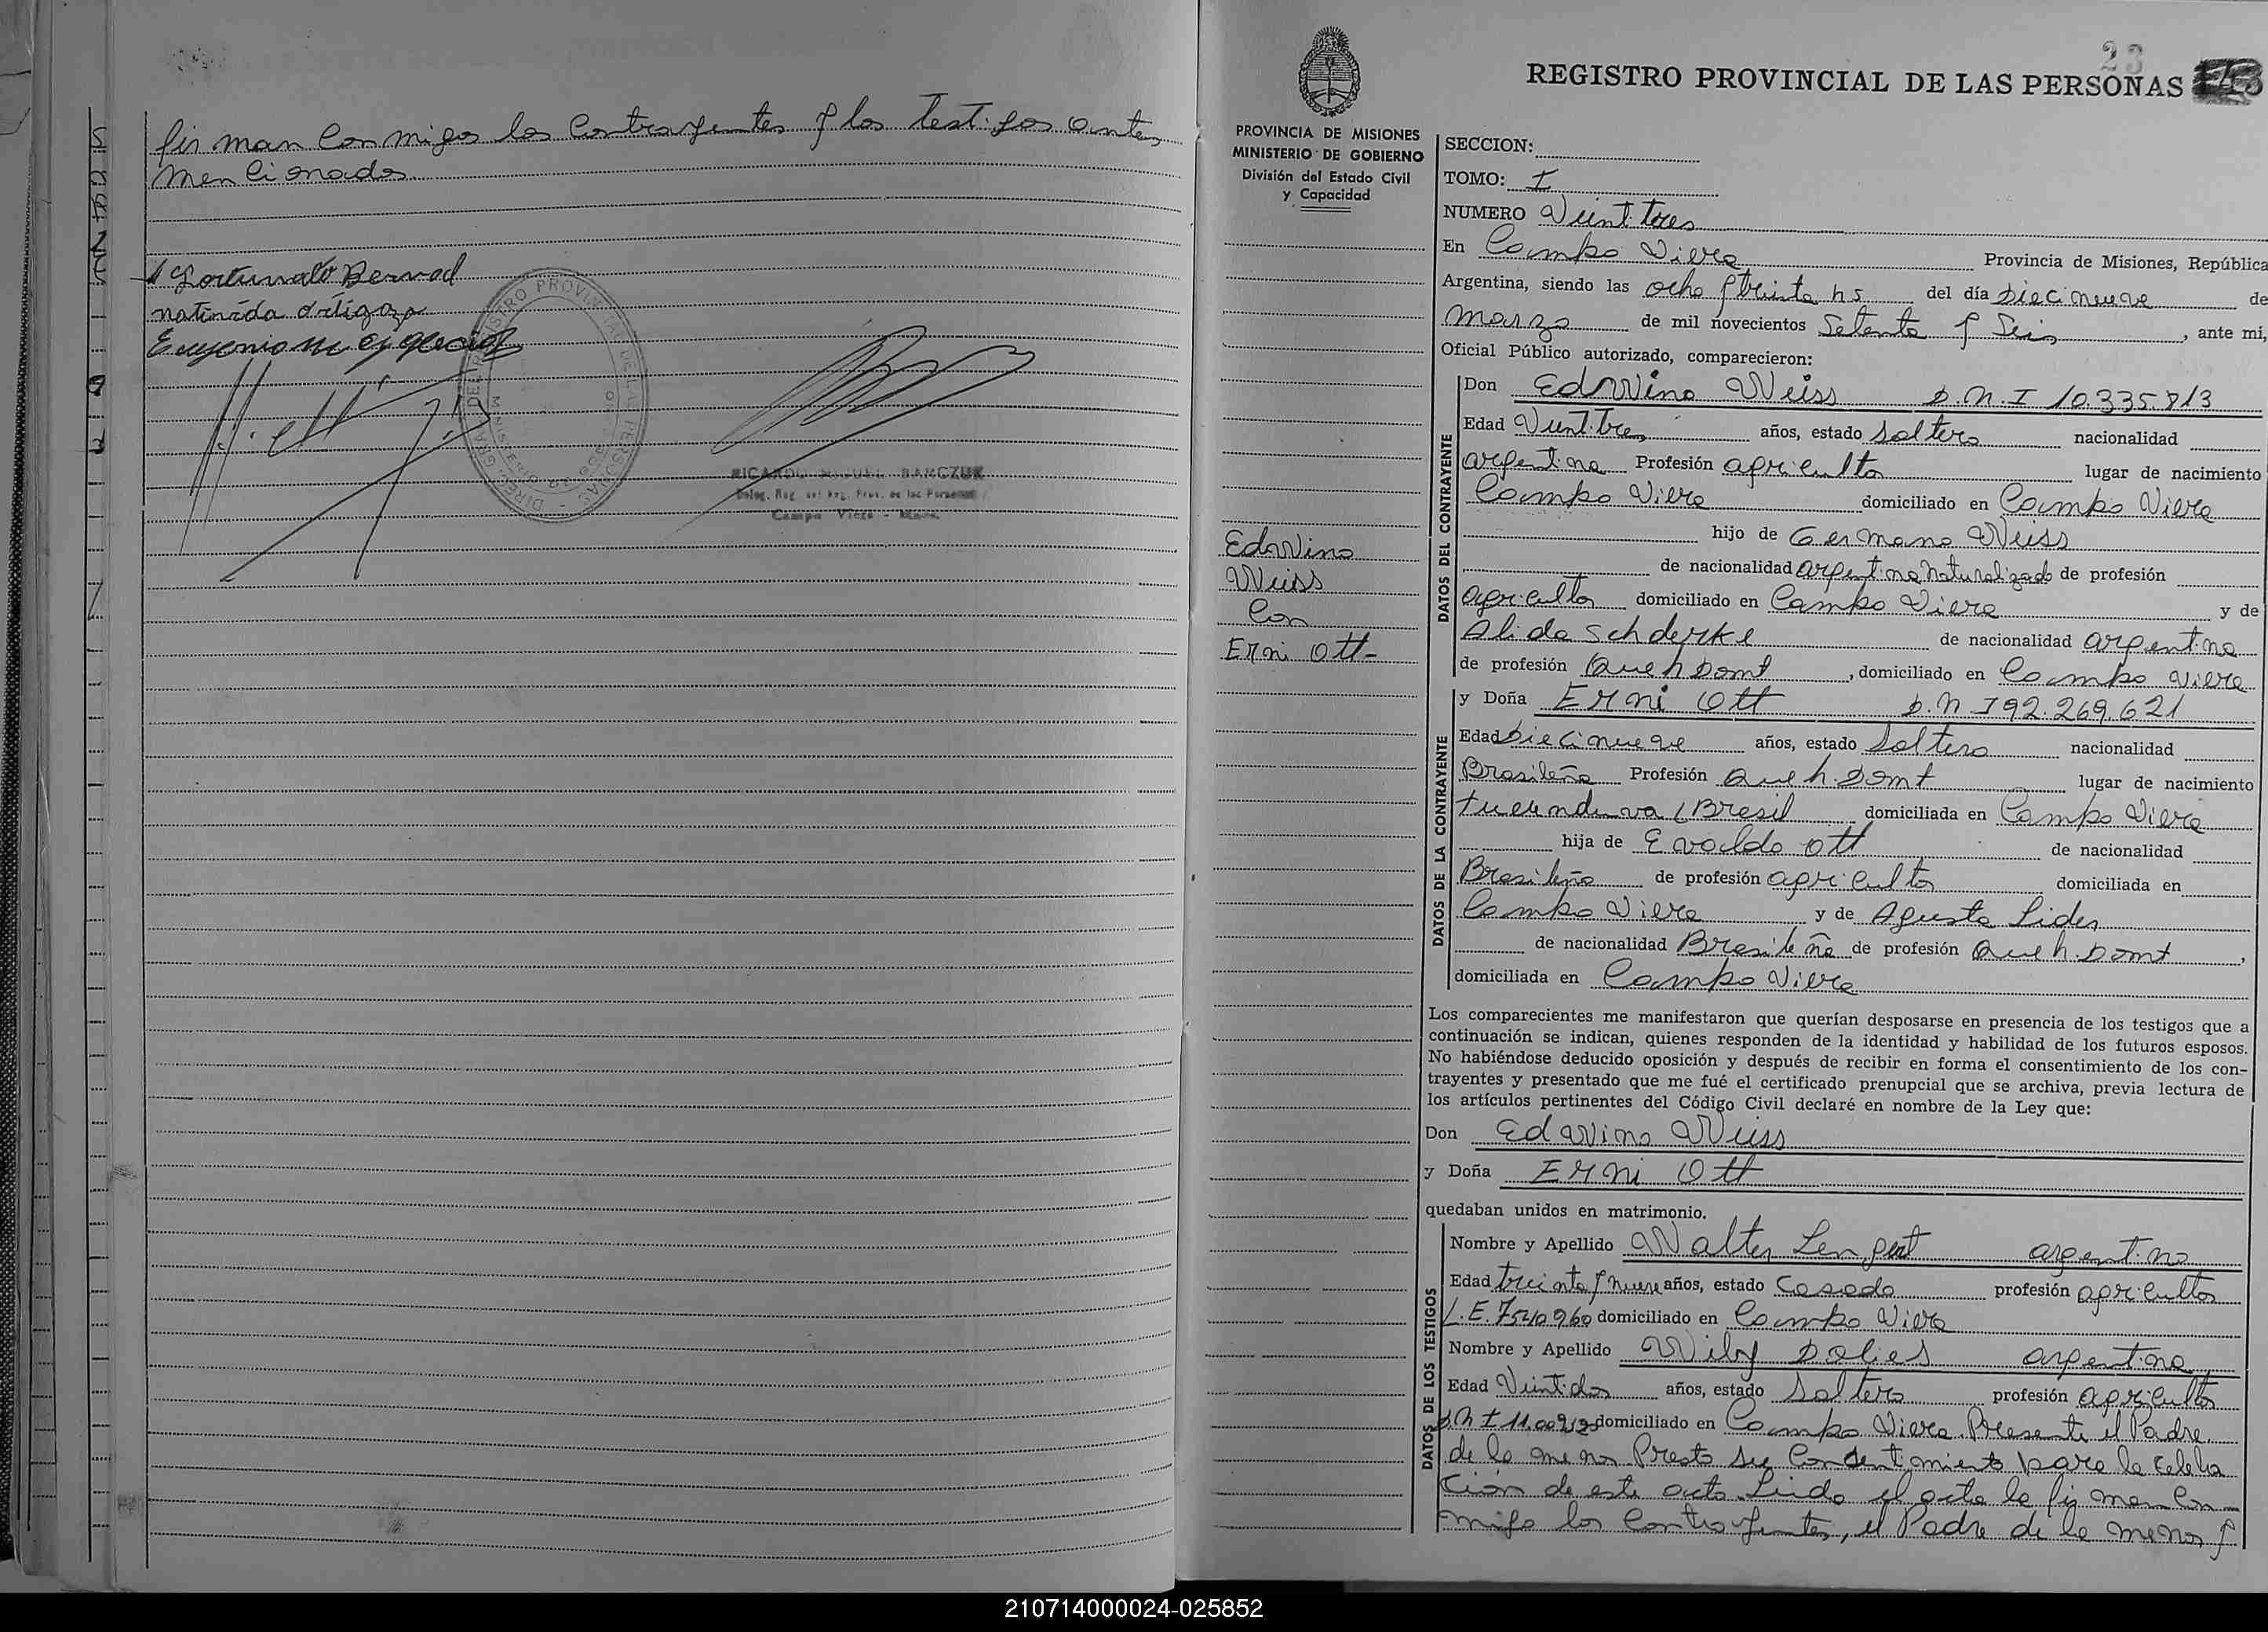 firman conmigo los contrayentes y los testigos antes
mencionados.
Fortunato Bernal
natinida ortigoza
Eugenio M
RICARDO MIGUEL BARCZUK
Deleg. Reg. del Reg. Prov. de las Personas
Campo Viera - Mnes.
23
REGISTRO PROVINCIAL DE LAS PERSONAS
PROVINCIA DE MISIONES
MINISTERIO DE GOBIERNO
División del Estado Civil
y Capacidad
Edwino
Weiss
Con
Erni Ott-
SECCION:
TOMO: I
NUMERO Veintitres
En Campo Viera Provincia de Misiones, República
Argentina, siendo las ocho y treinta hs del día Diecinueve de
Marzo de mil novecientos Setenta y Seis, ante mi,
Oficial Público autorizado, comparecieron:
DATOS DEL CONTRAYENTE
Don Edwino Weiss D.N.I 10.335.813
Edad Veintitres años, estado Soltero nacionalidad
argentino Profesión agricultor lugar de nacimiento
Campo Viera domiciliado en Campo Viera
hijo de Germano Weiss
de nacionalidad argentino Naturalizado de profesión
agricultor domiciliado en Campo Viera y de
Alida Schderke de nacionalidad argentina
de profesión Que h Domt, domiciliado en Campo Viera
DATOS DE LA CONTRAYENTE
y Doña Erni Ott D.N I 92.269.621
Edad Diecinueve años, estado Soltera nacionalidad
Brasileña Profesión Que h. Domt lugar de nacimiento
Tucunduva (Brasil domiciliada en Campo Viera
hija de Evaldo Ott de nacionalidad
Brasileño de profesión agricultor domiciliada en
Campo Viera y de Agusta Lider
de nacionalidad Brasileña de profesión Que h. Domt,
domiciliada en Campo Viera
Los comparecientes me manifestaron que querían desposarse en presencia de los testigos que a
continuación se indican, quienes responden de la identidad y habilidad de los futuros esposos.
No habiéndose deducido oposición y después de recibir en forma el consentimiento de los con-
trayentes y presentado que me fué el certificado prenupcial que se archiva, previa lectura de
los artículos pertinentes del Código Civil declaré en nombre de la Ley que:
Don Edwino Weiss
y Doña Erni Ott
quedaban unidos en matrimonio.
DATOS DE LOS TESTIGOS
Nombre y Apellido Walter Lengert argentino
Edad treinta y nueve años, estado Casado profesión agricultor
L.E. 7540960 domiciliado en Campo Viera
Nombre y Apellido Wily Dolies argentino
Edad Veintidos años, estado Soltero profesión agricultor
D.N I domiciliado en Campo Viera. Presente el Padre
de la menor Presto su Consentimiento para la celebra
ción de este acto. Leida el acta la firman Con-
migo los contrayentes, el Padre de la menor y
210714000024-025852